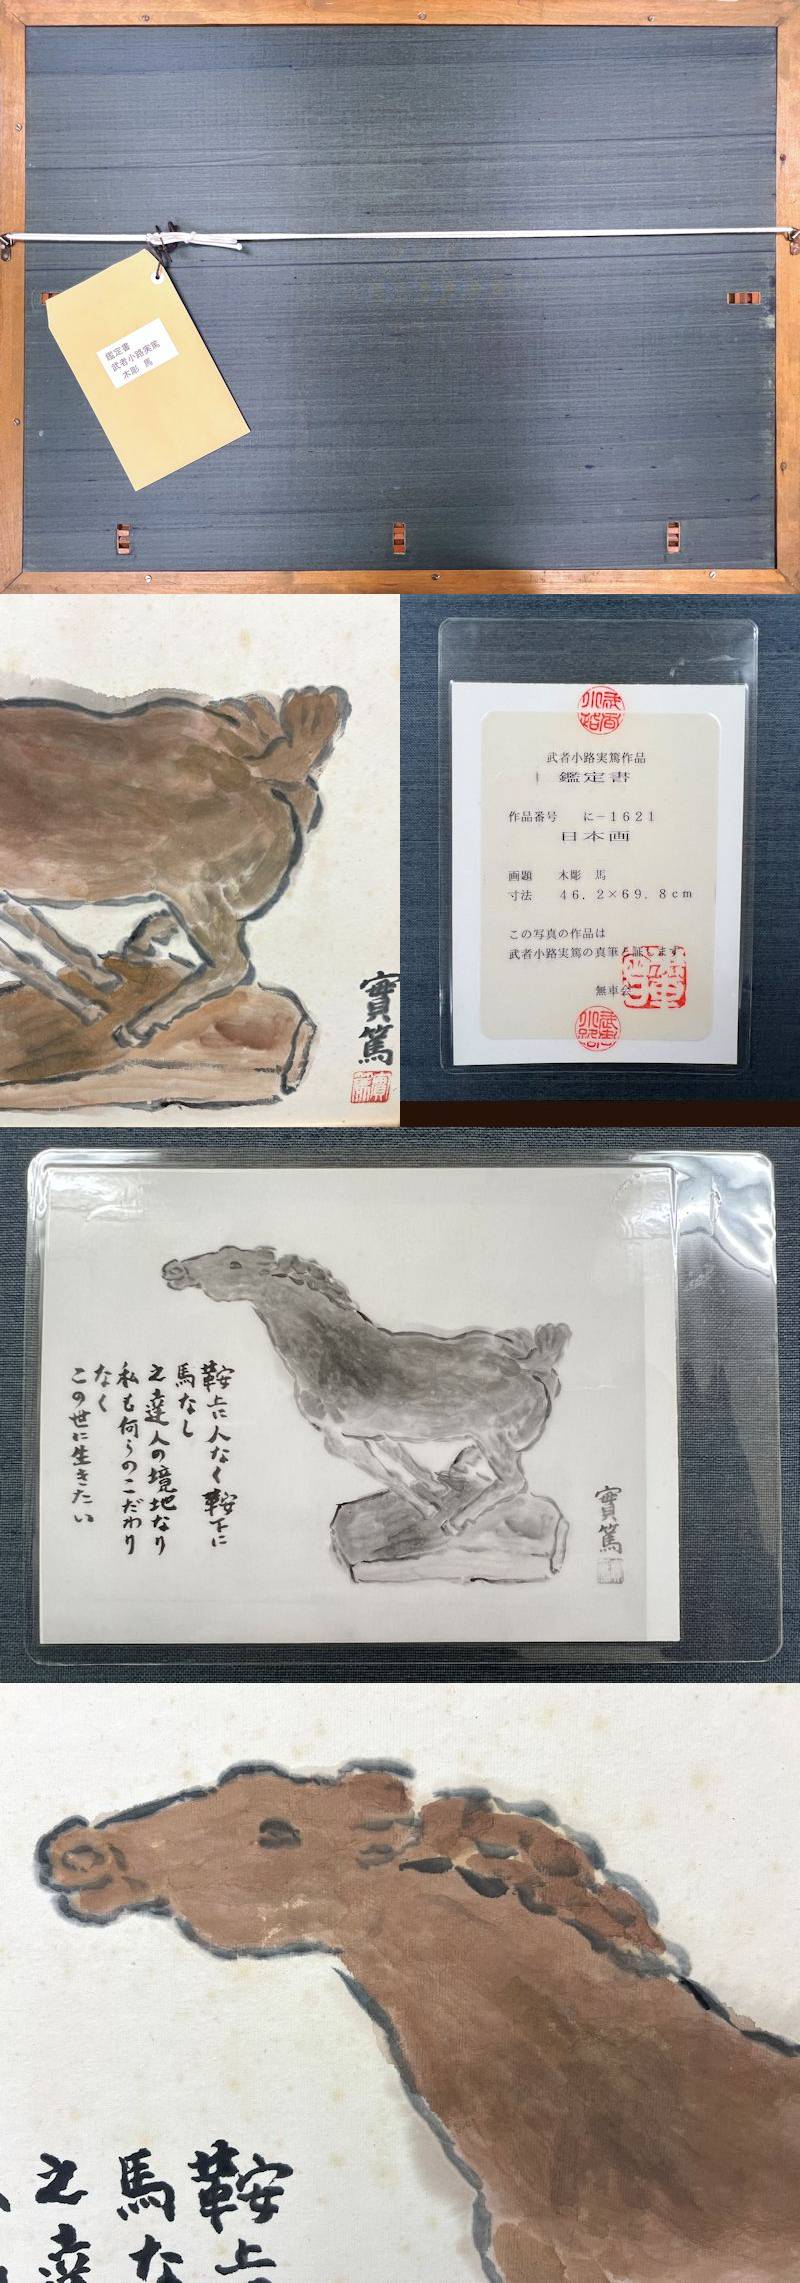 鑑定書
武者小路実篤
木彫　馬
實篤
武者小路実篤作品
鑑定書
作品番号　に－１６２１
日本画
画題　木彫　馬
寸法　４６．２×６９．８ｃｍ
この写真の作品は
武者小路実篤の真筆と証します
無車会
鞍上に人なく鞍下に
馬なし
之達人の境地なり
私も何らのこだわり
なく
この世に生きたい
實篤
鞍上
馬な
之達